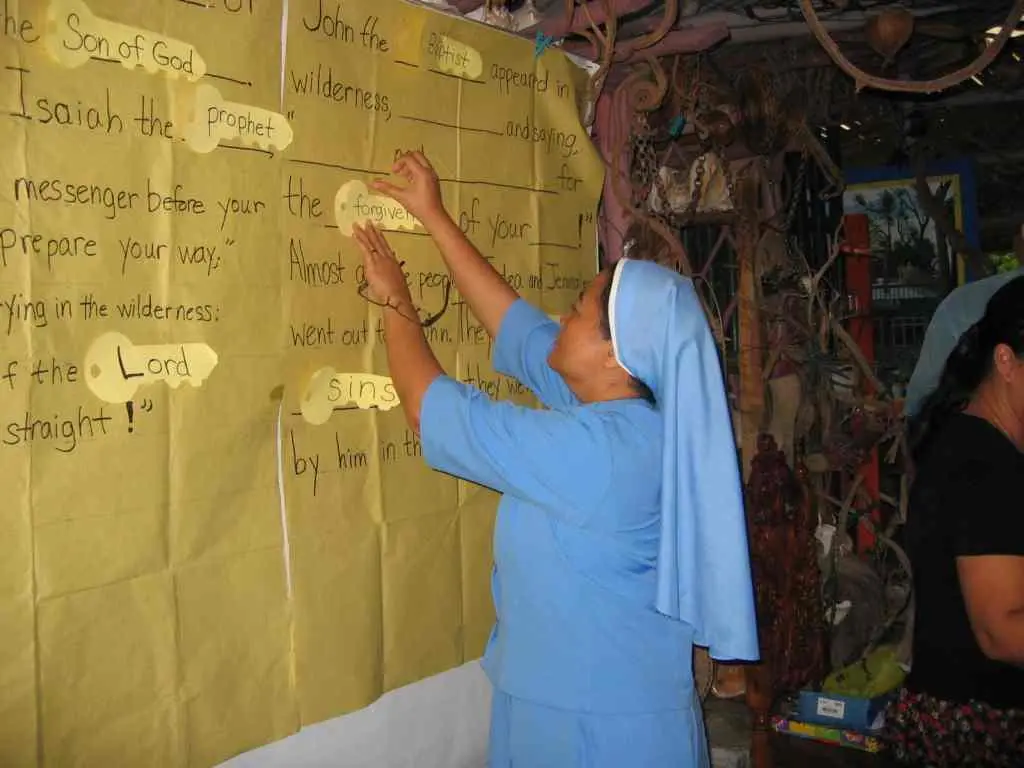 the Son of God
Isaiah the prophet
messenger before your
prepare your way,"
rying in the wilderness:
f the Lord
straight!"
John the Baptist appeared in
wilderness, and saying,
for
the forgiven of your !"
Almost
went out
sins they we
by him in th